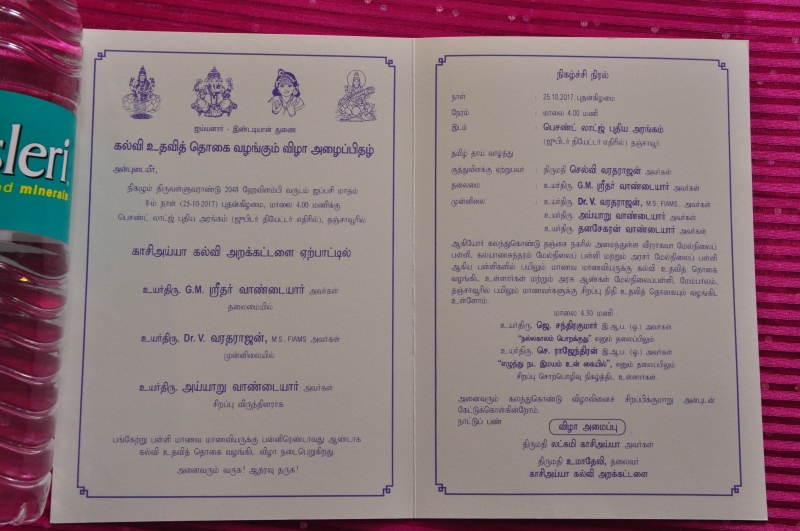 sleri
ed minerals
ஐய்யனார் - இண்டியான் துணை
கல்வி உதவித் தொகை வழங்கும் விழா அழைப்பிதழ்
அன்புடையீர்,
நிகழும் திருவள்ளுவராண்டு 2048 ஹேவிளம்பி வருடம் ஐப்பசி மாதம்
8-ம் நாள் (25-10-2017) புதன்கிழமை, மாலை 4.00 மணிக்கு
பெசண்ட் லாட்ஜ் புதிய அரங்கம் (ஜுபிடர் தியேட்டர் எதிரில்), தஞ்சாவூரில்
காசிஅய்யா கல்வி அறக்கட்டளை ஏற்பாட்டில்
உயர்திரு. G.M. ஸ்ரீதர் வாண்டையார் அவர்கள்
தலைமையில்
உயர்திரு. Dr. V. வரதராஜன், M.S., FIAMS அவர்கள்
முன்னிலையில்
உயர்திரு. அய்யாறு வாண்டையார் அவர்கள்
சிறப்பு விருந்தினராக
பங்கேற்று பள்ளி மாணவ மாணவியருக்கு பன்னிரெண்டாவது ஆண்டாக
கல்வி உதவித் தொகை வழங்கிட விழா நடைபெறுகிறது.
அனைவரும் வருக! ஆதரவு தருக!
நிகழ்ச்சி நிரல்
நாள் : 25.10.2017, புதன்கிழமை
நேரம் : மாலை 4.00 மணி
இடம் : பெசண்ட் லாட்ஜ் புதிய அரங்கம்
(ஜுபிடர் தியேட்டர் எதிரில்) தஞ்சாவூர்.
தமிழ் தாய் வாழ்ந்து
குத்துவிளக்கு ஏற்றுபவர் : திருமதி செல்வி வரதராஜன் அவர்கள்
தலைமை : உயர்திரு G.M. ஸ்ரீதர் வாண்டையார் அவர்கள்
முன்னிலை : உயர்திரு Dr. V. வரதராஜன், M.S., FIAMS., அவர்கள்
உயர்திரு அய்யாறு வாண்டையார் அவர்கள்
உயர்திரு தனசேகரன் வாண்டையார் அவர்கள்
ஆகியோர் கலந்துகொண்டு தஞ்சை நகரில் அமைந்துள்ள வீரராகவா மேல்நிலைப்
பள்ளி, கல்யாணசுந்தரம் மேல்நிலைப் பள்ளி மற்றும் அரசர் மேல்நிலைப் பள்ளி
ஆகிய பள்ளிகளில் பயிலும் மாணவ மாணவியருக்கு கல்வி உதவித் தொகை
வழங்கிட உள்ளார்கள் மற்றும் அரசு ஆண்கள் மேல்நிலைப்பள்ளி, மேம்பாலம்,
தஞ்சாவூரில் பயிலும் மாணவர்களுக்கு சிறப்பு நிதி உதவித் தொகையும் வழங்கிட
உள்ளோம்.
மாலை 4.30 மணி :
உயர்திரு. ஜெ. சந்திரகுமார் இ.ஆ.ப. (ஓ.) அவர்கள்
"நல்லகாலம் பொறக்குது" எனும் தலைப்பிலும்
உயர்திரு. செ. ராஜேந்திரன் இ.ஆ.ப. (ஓ.) அவர்கள்
"எழுந்து நட இமயம் உன் கையில்", எனும் தலைப்பிலும்
சிறப்பு சொற்பொழிவு நிகழ்த்திட உள்ளார்கள்.
அனைவரும் கலந்துகொண்டு விழாவினைச் சிறப்பிக்குமாறு அன்புடன்
கேட்டுக்கொள்கின்றோம்.
நாட்டுப் பண்
விழா அமைப்பு
திருமதி லட்சுமி காசிஅய்யா அவர்கள்
திருமதி உமாதேவி, தலைவர்
காசிஅய்யா கல்வி அறக்கட்டளை